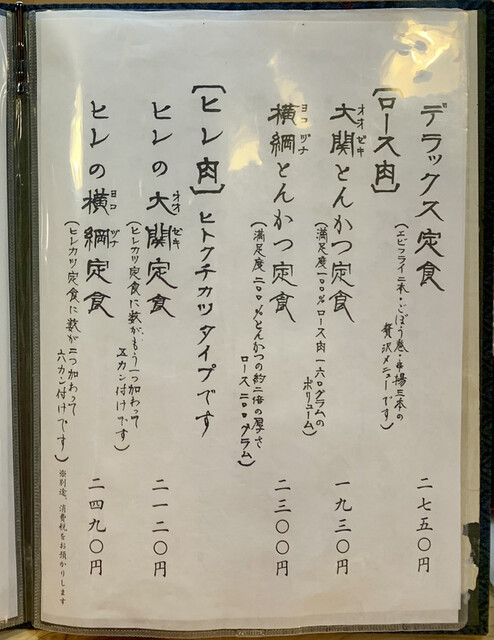 デラックス定食
(エビフライ二本・ごぼう巻・串揚三本の
贅沢メニューです)
二七五〇円
[ロース肉]
大関とんかつ定食
オオゼキ
(満足度一〇〇%ロース肉一六〇グラムの
ボリューム)
一九三〇円
横綱とんかつ定食
ヨコヅナ
(満足度二〇〇%とんかつの約二倍の厚さ
ロース二〇〇グラム)
二三〇〇円
[ヒレ肉]ヒトクチカツタイプです
ヒレの大関定食
オオゼキ
(ヒレカツ定食に数が、もう一つ加わって
五カン付けです)
二一二〇円
ヒレの横綱定食
ヨコヅナ
(ヒレカツ定食に数が二つ加わって
六カン付けです)
二四九〇円
※別途、消費税をお預かりします